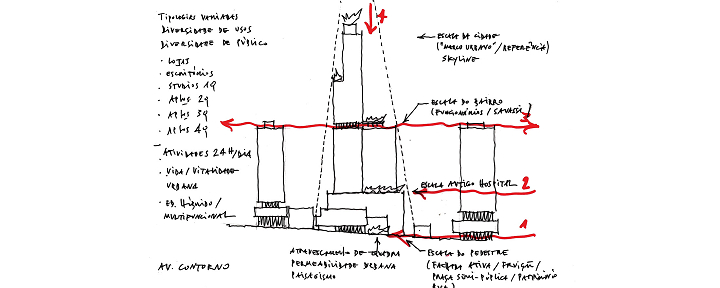 TIPOLOGIAS VARIADAS
DIVERSIDADE DE USOS
DIVERSIDADE DE PÚBLICO
• LOJAS
• ESCRITÓRIOS
• STUDIOS 1Q
• APTOS 2Q
• APTOS 3Q
• APTOS 4Q
- ATIVIDADES 24H/DIA
• VIDA/VITALIDADE
URBANA
• ED. HÍBRIDO/
MULTIFUNCIONAL
AV. CONTORNO
4
ESCALA DA CIDADE
("MARCO URBANO"/REFERÊNCIA)
SKYLINE
ESCALA DO BAIRRO
(FUNCIONÁRIOS / SAVASSI)
3
ESCALA ANTIGO HOSPITAL
2
1
ATRAVESSAMENTO DE QUADRA
PERMEABILIDADE URBANA
PAISAGISMO
ESCALA DO PEDESTRE
(FACHADA ATIVA / FRUIÇÃO /
PRAÇA SEMI-PÚBLICA / PATRIMÔNIO